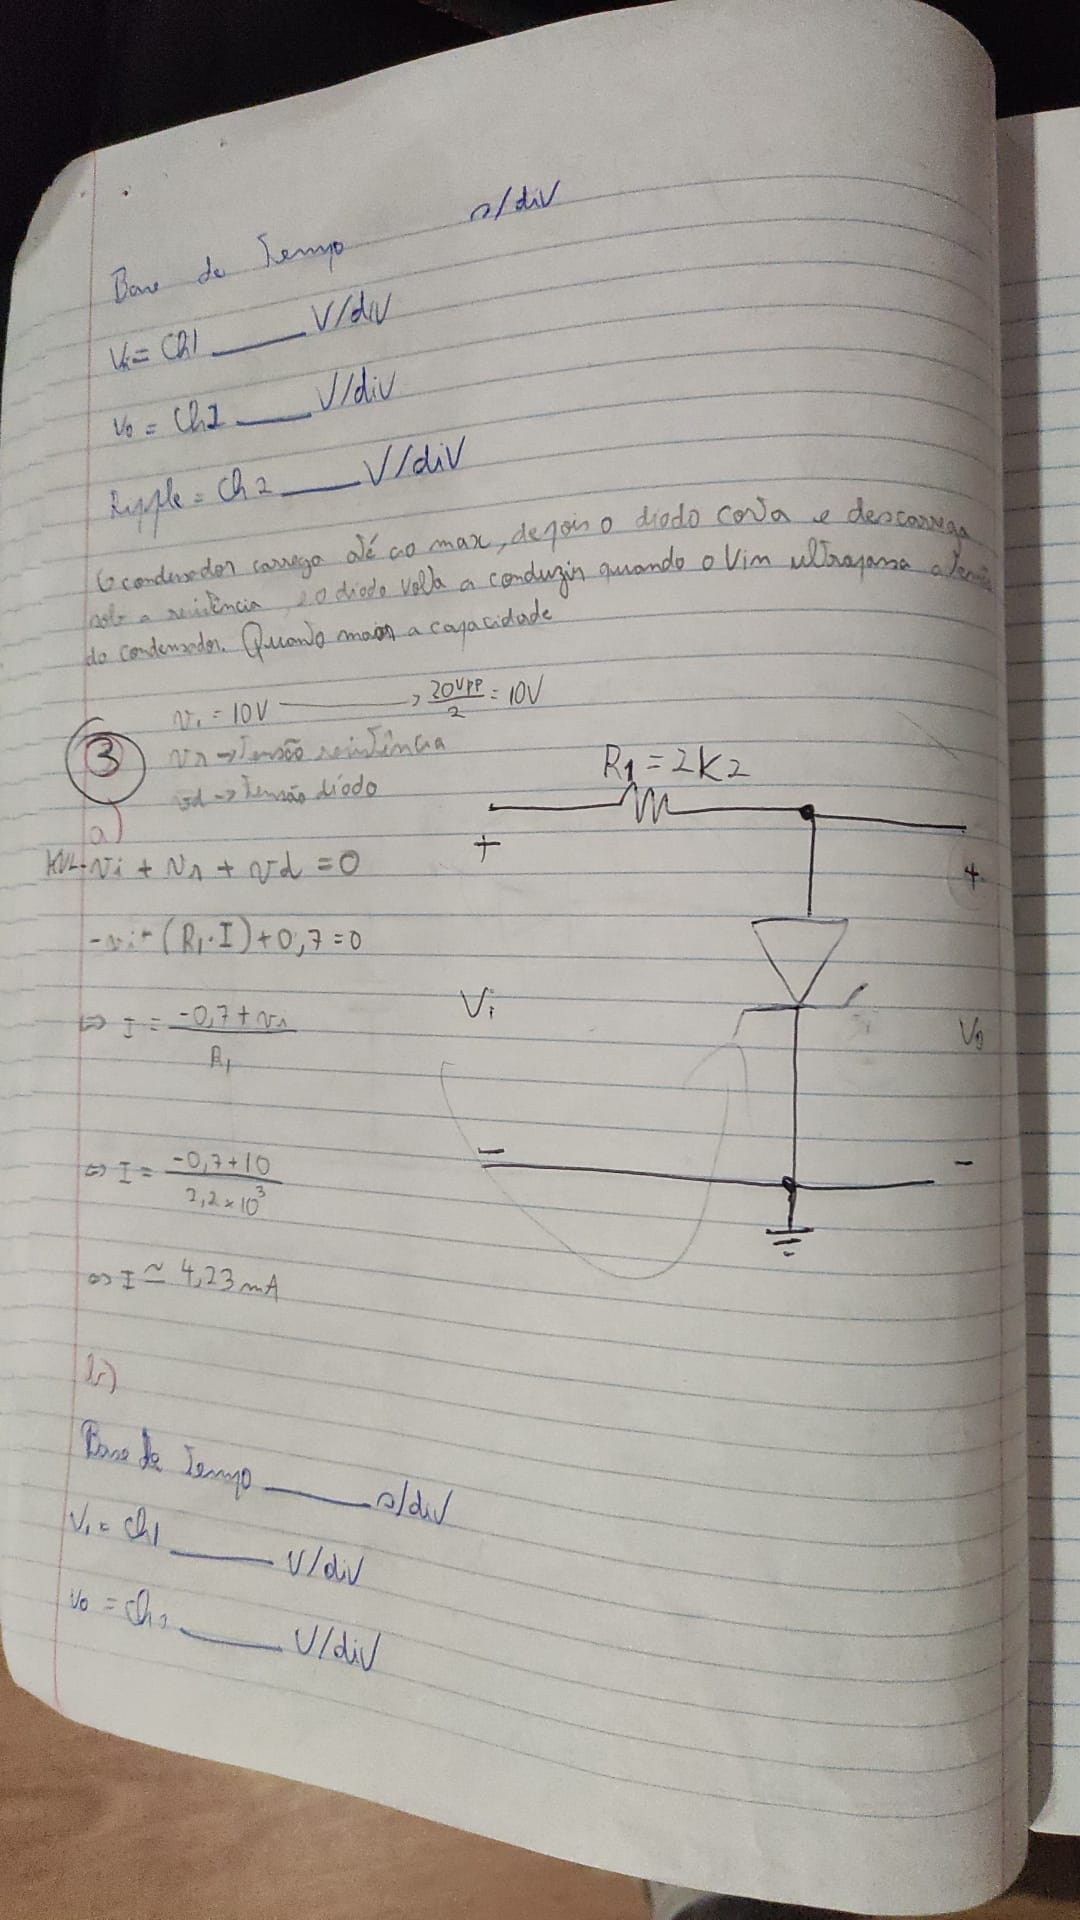 Base de Tempo s/div
Vi = Ch1 ____ V/div
Vo = Ch2 ____ V/div
Ripple = Ch2 ____ V/div
O condensador carrega até ao max, depois o diodo corta e descarrega
sob a resistência, e o diodo volta a conduzir quando o Vin ultrapassa a tensão
do condensador. Quanto maior a capacidade
vi = 10V → 20Vpp/2 = 10V
3
vr → Tensão resistência
vd → Tensão díodo
R1 = 2K2
a)
KVL -vi + vr + vd = 0
-vi + (R1 · I) + 0,7 = 0
⇔ I = -0,7 + vi / R1
⇔ I = -0,7 + 10 / 2,2 × 10³
⇔ I ≃ 4,23 mA
+
+
Vi
Vo
-
-
b)
Base de Tempo ____ s/div
Vi = Ch1 ____ V/div
Vo = Ch2 ____ V/div